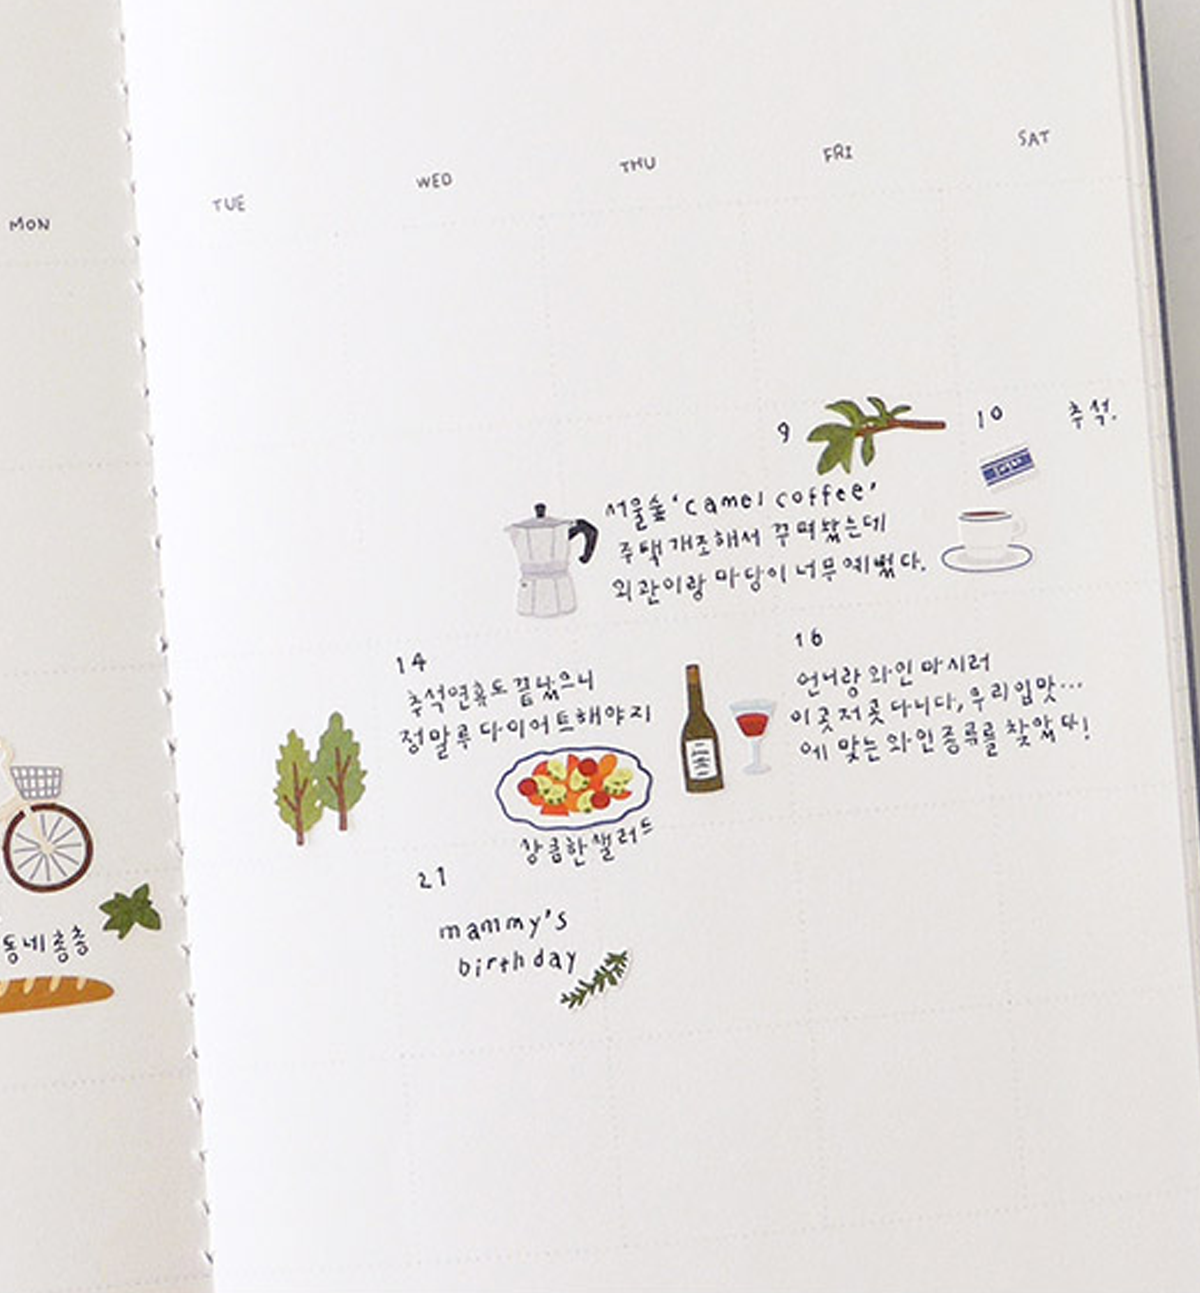 MON
TUE
WED
THU
FRI
SAT
9
10
추석.
서울숲 'camel coffee'
주택 개조해서 꾸며놨는데
외관이랑 마당이 너무 예뻤다.
14
추석연휴도 끝났으니
정말루 다이어트해야지
상큼한 샐러드
16
언니랑 와인 마시러
이곳저곳 다니다, 우리입맛...
에 맞는 와인종류를 찾았다!
동네총총
21
mammy's
birthday